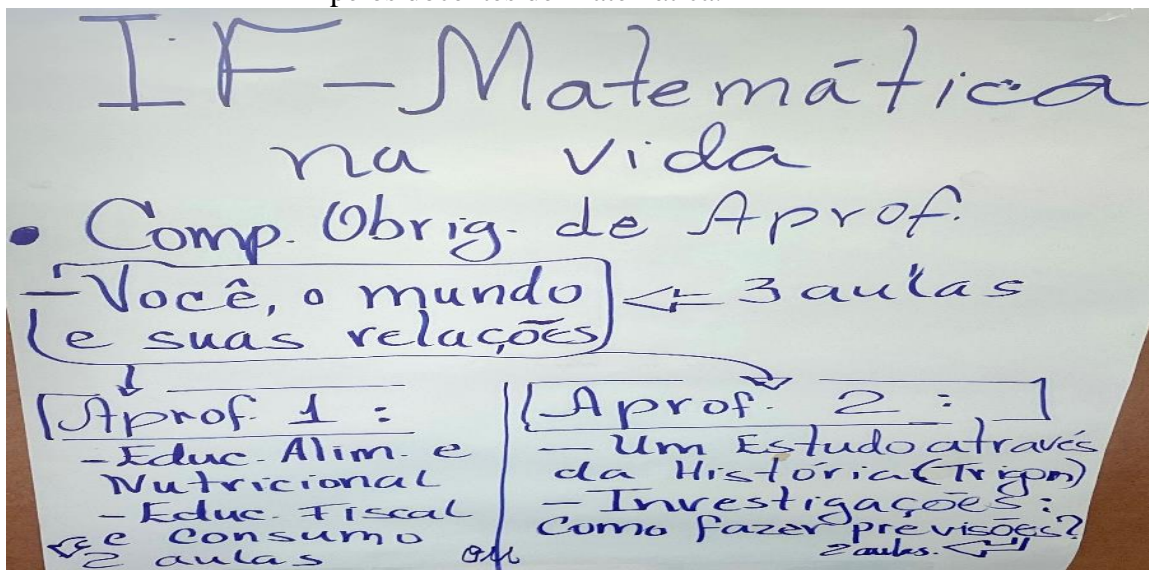 IF - Matemática
na vida
• Comp. Obrig. de Aprof.
- Você, o mundo ⇐ 3 aulas
e suas relações
Aprof. 1 :
- Educ. Alim. e
Nutricional
- Educ. Fiscal
e consumo
2 aulas
ou
Aprof. 2 :
- Um Estudo através
da História (Trigon)
- Investigações :
Como fazer previsões?
2 aulas.